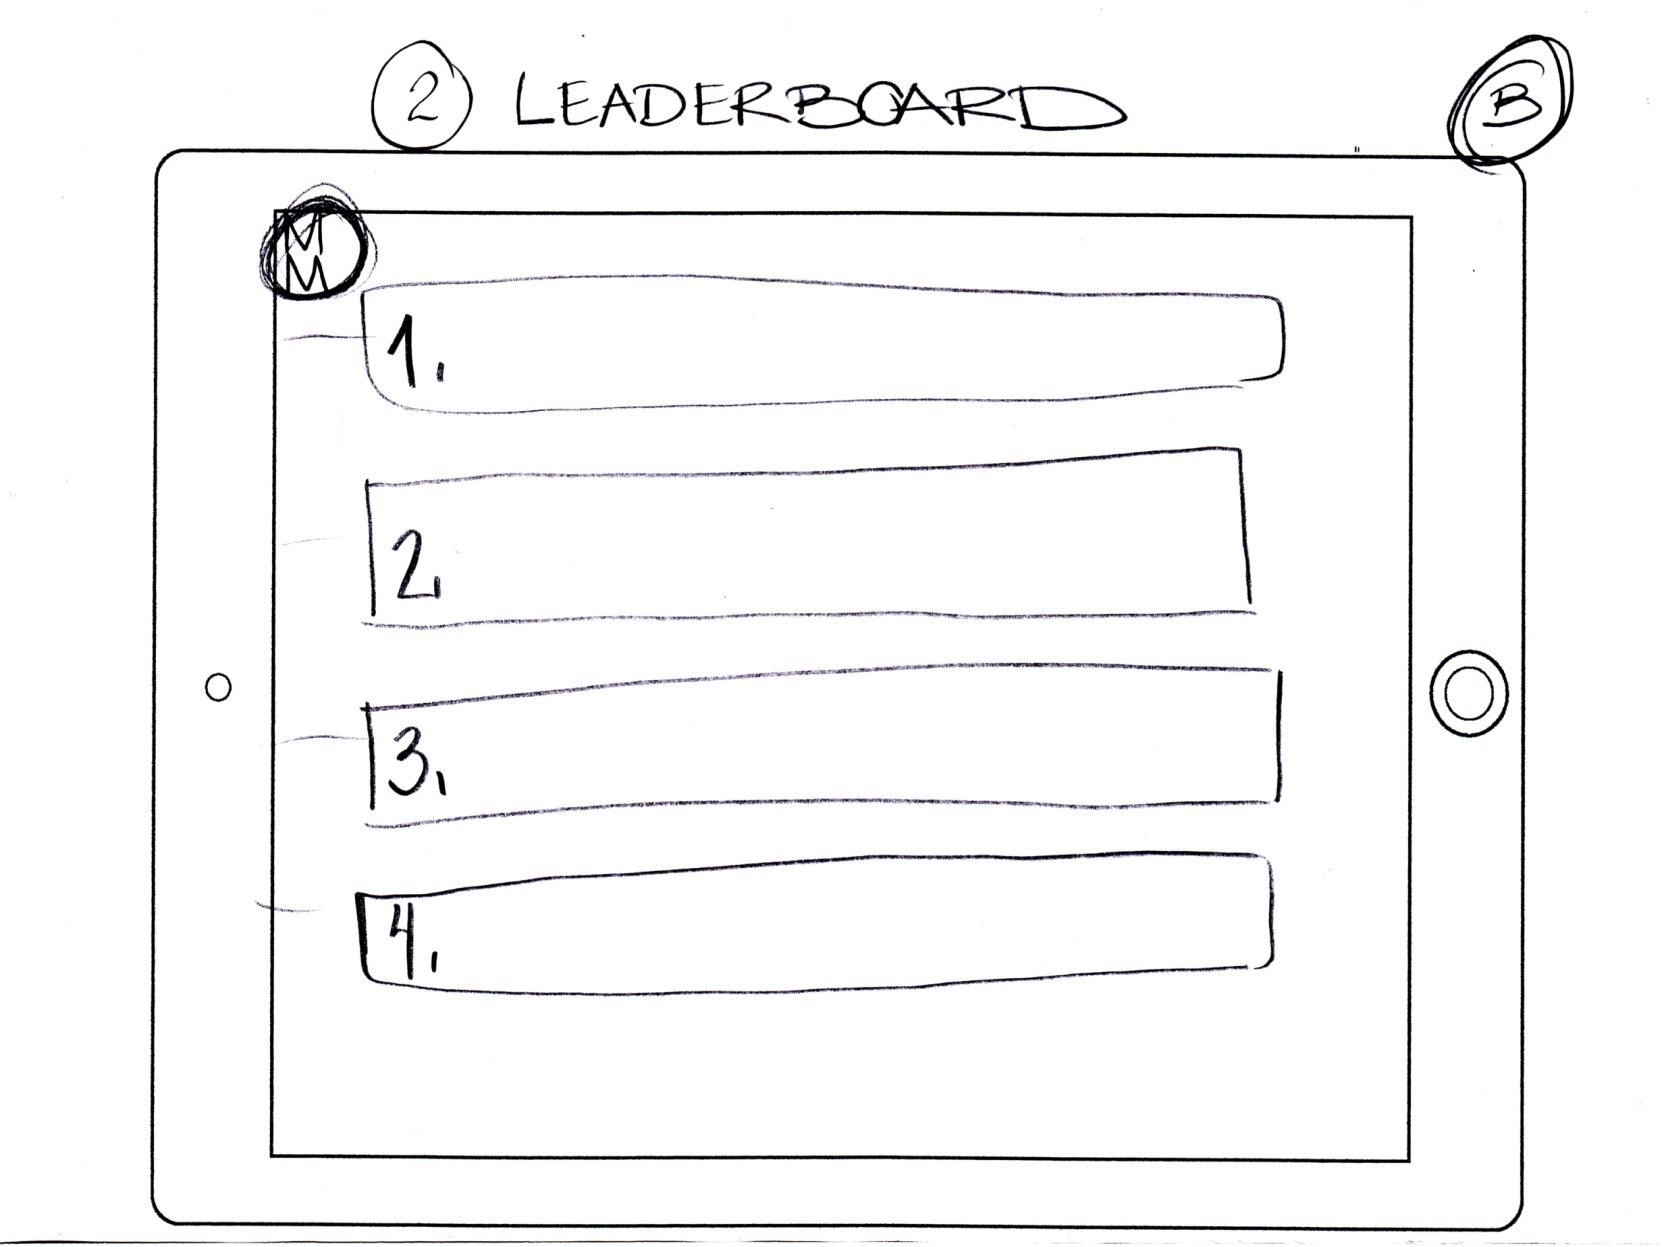 2 LEADERBOARD B
M
M
1.
2.
3.
4.